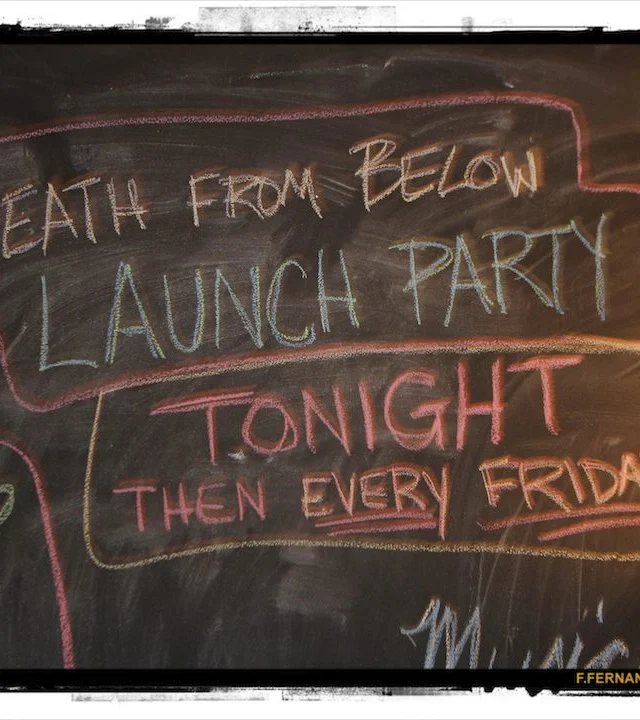 EATH FROM BELOW
LAUNCH PARTY
TONIGHT
THEN EVERY FRIDA
Music
F.FERNAN